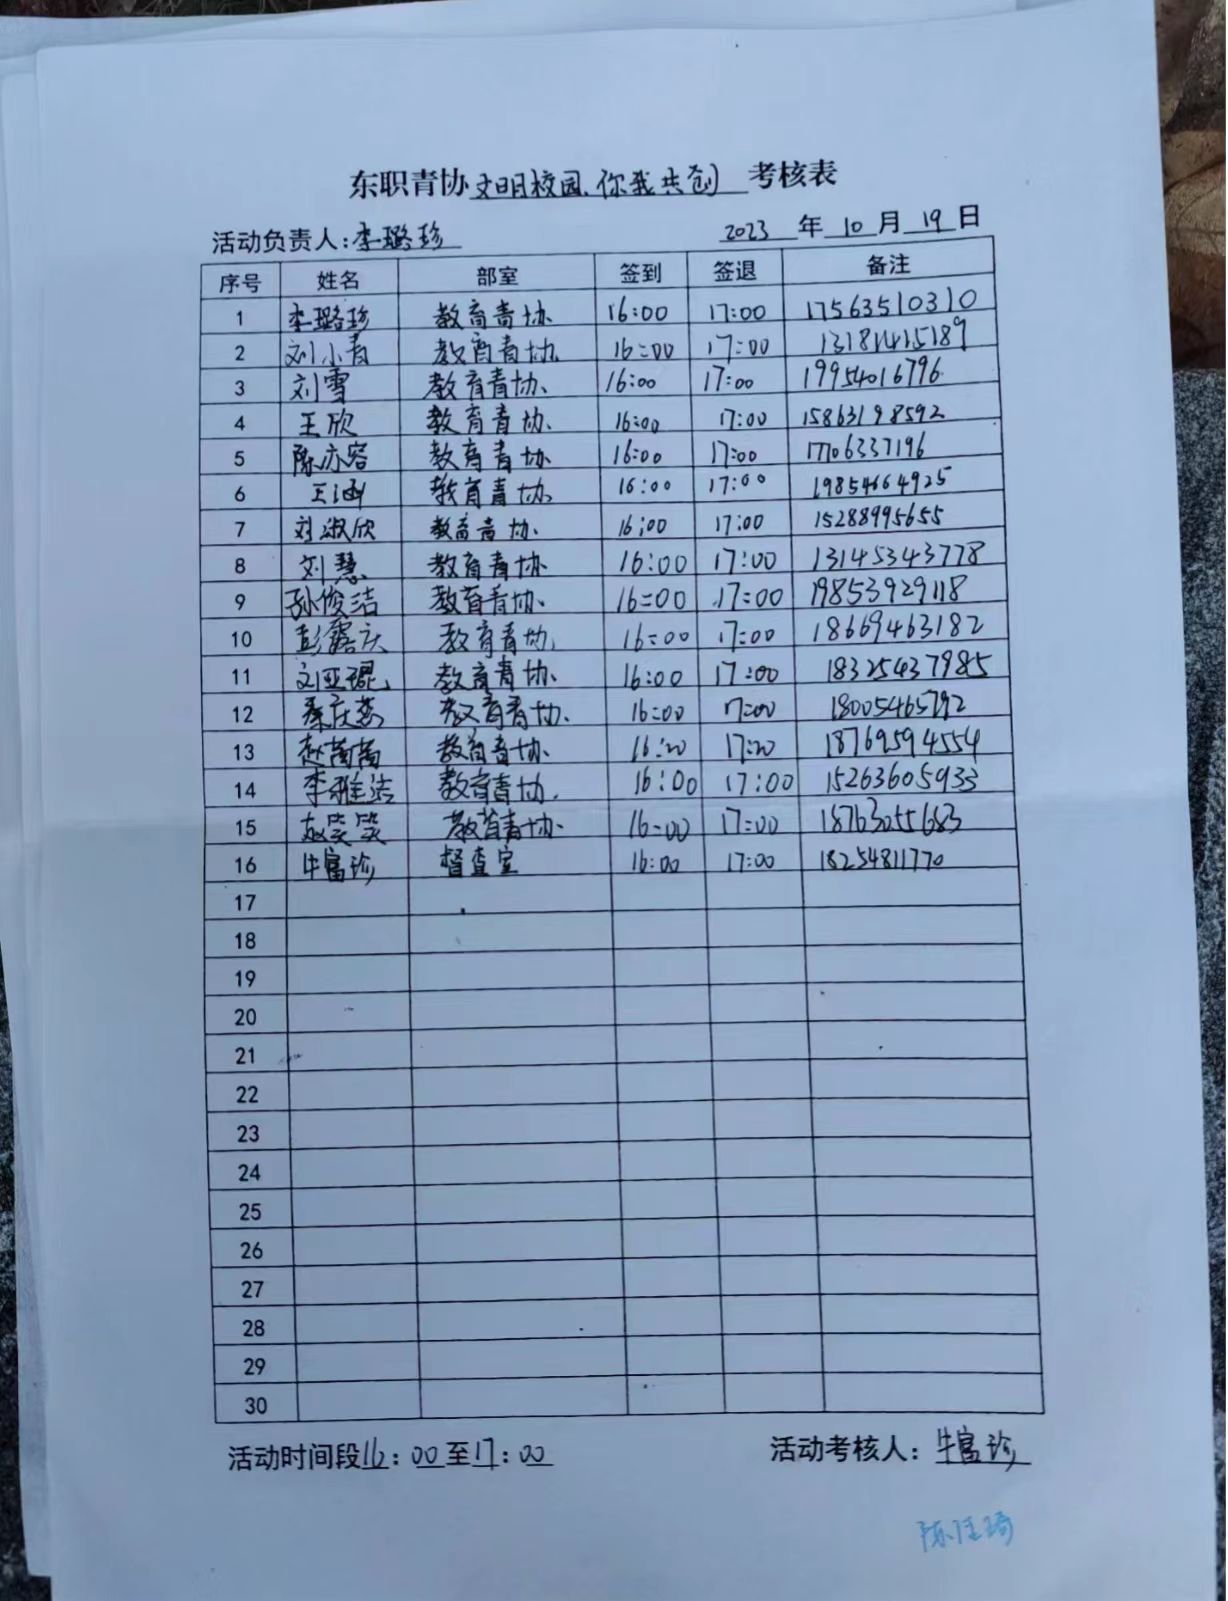 东职青协文明校园、你我共创 考核表
活动负责人:李璐珍 2023 年 10 月 19 日
序号 姓名 部室 签到 签退 备注
1 李璐珍 教育青协 16:00 17:00 17563510310
2 刘小青 教育青协 16:00 17:00 13181415189
3 刘雪 教育青协 16:00 17:00 19954016796
4 王欣 教育青协 16:00 17:00 15863198592
5 陈亦容 教育青协 16:00 17:00 17706337196
6 王涵 教育青协 16:00 17:00 19854664925
7 刘淑欣 教育青协 16:00 17:00 15288995655
8 刘慧 教育青协 16:00 17:00 13145343778
9 孙俊洁 教育青协 16:00 17:00 19853929118
10 彭露庆 教育青协 16:00 17:00 18669463182
11 刘亚琨 教育青协 16:00 17:00 18325437985
12 秦庆燕 教育青协 16:00 17:00 18005465792
13 赵茵茵 教育青协 16:20 17:20 18769594554
14 李雅洁 教育青协 16:00 17:00 15263605933
15 赵笑笑 教育青协 16:00 17:00 18763055683
16 牛富珍 督查室 16:00 17:00 18254811770
17
18
19
20
21
22
23
24
25
26
27
28
29
30
活动时间段16:00至17:00 活动考核人:牛富珍